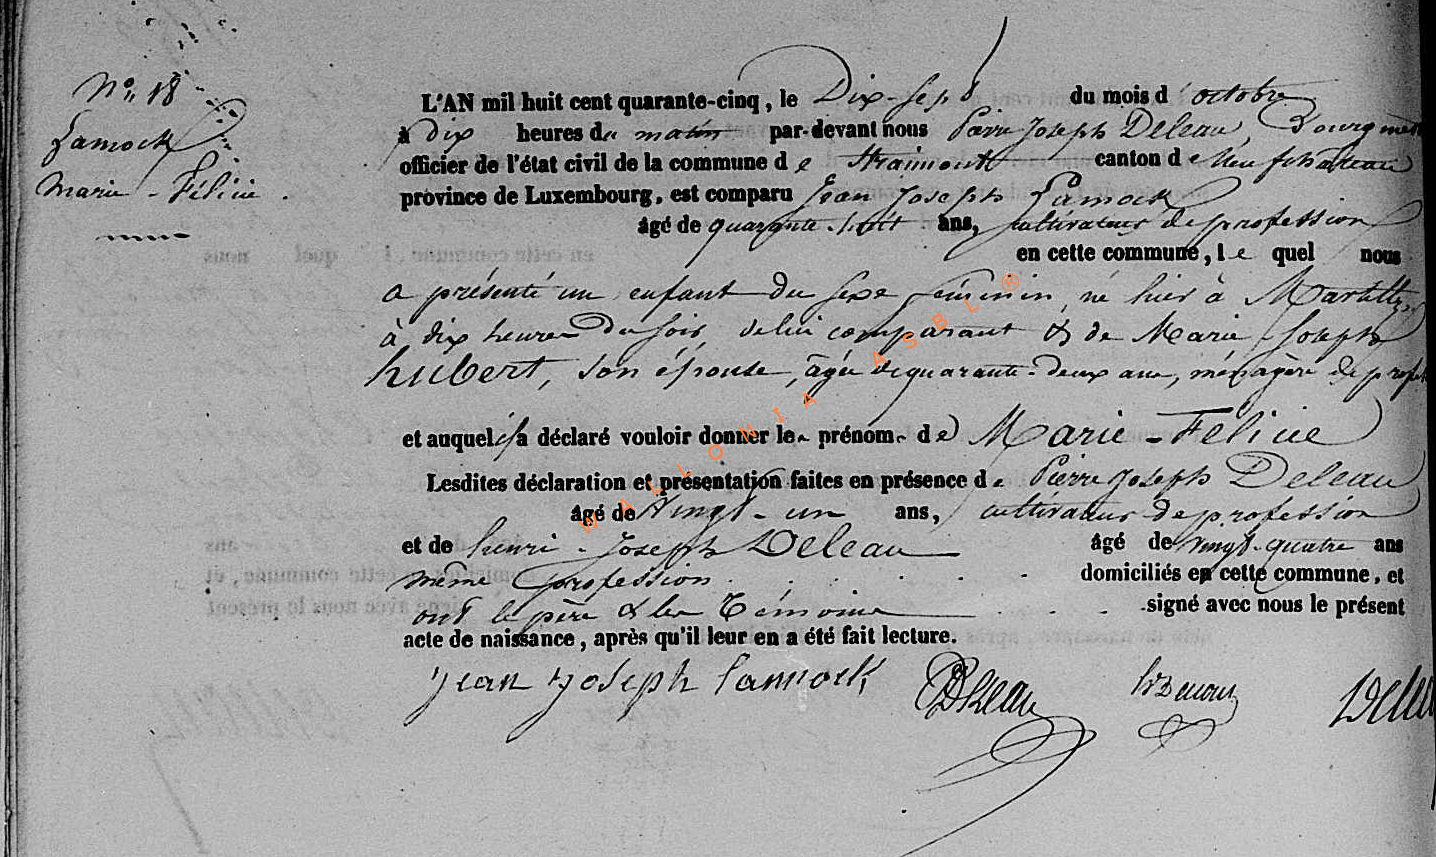 N° 18
Lamock
Marie-Félicie.
L'AN mil huit cent quarante-cinq, le Dix-sept du mois d'octobre
à dix heures du matin par-devant nous Pierre Joseph Deleau, Bourgmestre
officier de l'état civil de la commune de Straimont canton de Neufchateau
province de Luxembourg, est comparu Jean Joseph Lamock
âgé de quarante-huit ans, cultivateur de profession
en cette commune, lequel nous
a présenté un enfant du sexe féminin, né hier à Martilly,
à dix heures du soir, de lui comparant & de Marie Joseph
hubert, son épouse, âgée de quarante-deux ans, ménagère de profes
et auquel il a déclaré vouloir donner les prénoms de Marie-Félicie
Lesdites déclaration et présentation faites en présence de Pierre Joseph Deleau
âgé de Vingt-un ans, cultivateur de profession
et de henri-Joseph Deleau âgé de vingt-quatre ans
même profession domiciliés en cette commune, et
ont le père & les Témoins signé avec nous le présent
acte de naissance, après qu'il leur en a été fait lecture.
Jean Joseph Lamock, PDeleau
WALLONIA ASBL ®